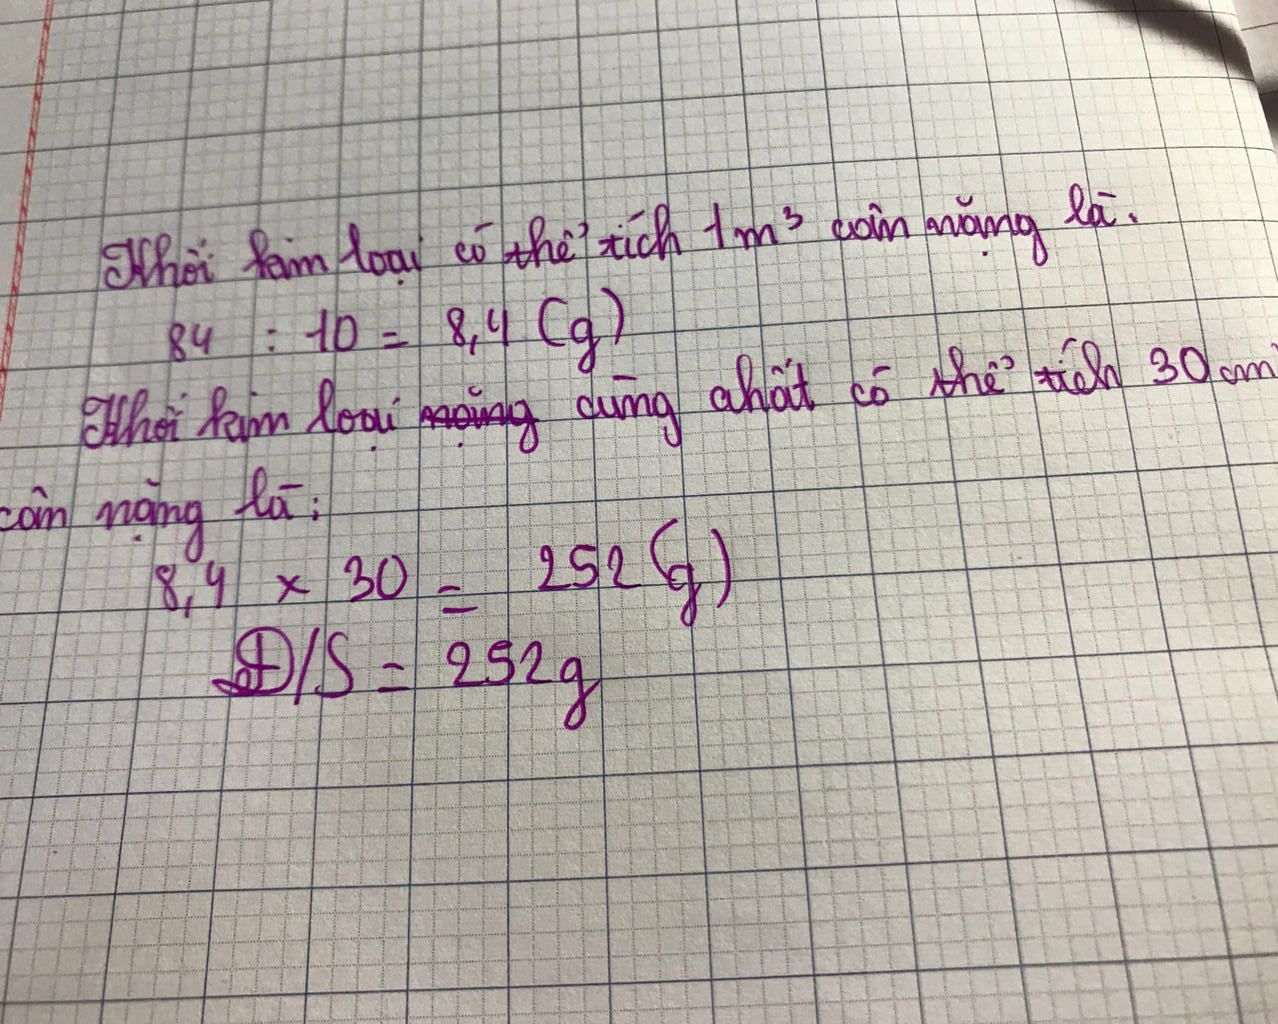 Khối kim loại có thể tích 1m³ cân nặng là.
84 : 10 = 8,4 (g)
Khối kim loại nặng cùng chất có thể tích 30cm³
cân nặng là:
8,4 x 30 = 252 (g)
Đ/S = 252g